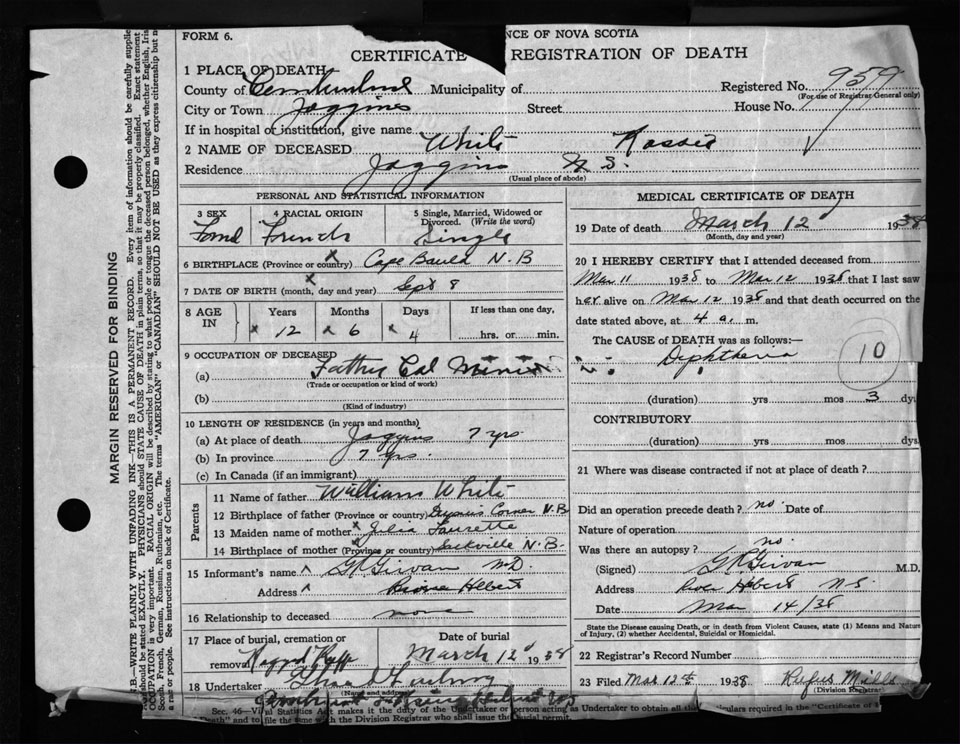 FORM 6.
NCE OF NOVA SCOTIA
CERTIFICATE REGISTRATION OF DEATH
1 PLACE OF DEATH
County of Cumberland Municipality of
Registered No. 959
(For use of Registrar General only)
City or Town Joggins Street House No.
If in hospital or institution, give name
2 NAME OF DECEASED White Kassie
Residence Joggins N S.
(Usual place of abode)
PERSONAL AND STATISTICAL INFORMATION
3 SEX 4 RACIAL ORIGIN 5 Single, Married, Widowed or Divorced. (Write the word)
French Single
6 BIRTHPLACE (Province or country) Cape Bauld N.B
7 DATE OF BIRTH (month, day and year) Sept 8
8 AGE IN Years Months Days If less than one day,
12 6 4 hrs. or min.
9 OCCUPATION OF DECEASED
(a) Father Coal Miner
(Trade or occupation or kind of work)
(b)
(Kind of industry)
10 LENGTH OF RESIDENCE (in years and months)
(a) At place of death Joggins 7 yrs
(b) In province 7 yrs.
(c) In Canada (if an immigrant)
Parents
11 Name of father William White
12 Birthplace of father (Province or country) Corner N.B
13 Maiden name of mother Julia Laurette
14 Birthplace of mother (Province or country) Sackville N.B.
15 Informant's name G R Girvan M.D.
Address River Hebert
16 Relationship to deceased none
17 Place of burial, cremation or removal
Date of burial
March 12 1938
18 Undertaker
(Name and address)
Sec. 46—Vital Statistics Act makes it the duty of the Undertaker or person acting as Undertaker to obtain all
MEDICAL CERTIFICATE OF DEATH
19 Date of death March 12 1938
(Month, day and year)
20 I HEREBY CERTIFY that I attended deceased from
Mar 11 1938 to Mar 12 1938 that I last saw
her alive on Mar 12 1938 and that death occurred on
date stated above, at 4 a. m.
The CAUSE of DEATH was as follows:—
Diphtheria
10
(duration) yrs mos 3 dys
CONTRIBUTORY
(duration) yrs mos dys
21 Where was disease contracted if not at place of death?
Did an operation precede death? no. Date of
Nature of operation
Was there an autopsy? no.
(Signed) G R Girvan M.D.
Address River Hebert N S
Date Mar 14/38
State the Disease causing Death, or in death from Violent Causes, state (1) Means and Nature of Injury, (2) whether Accidental, Suicidal or Homicidal.
22 Registrar's Record Number
23 Filed Mar 12th 1938 Rufus Mills
(Division Registrar
MARGIN RESERVED FOR BINDING
N.B.—WRITE PLAINLY WITH UNFADING INK—THIS IS A PERMANENT RECORD. Every item of information should be carefully supplied
should be stated EXACTLY. PHYSICIANS should STATE CAUSE OF DEATH in plain terms, so that it may be properly classified. Exact statement
OCCUPATION is very important. RACIAL ORIGIN will be described by stating to what people or tongue the deceased person belonged, whether English, Irish
Scotch, French, German, Russian, Ruthenian, etc. The terms "AMERICAN" or "CANADIAN" SHOULD NOT BE USED as they express citizenship but not
a race or people. See instructions on back of Certificate.